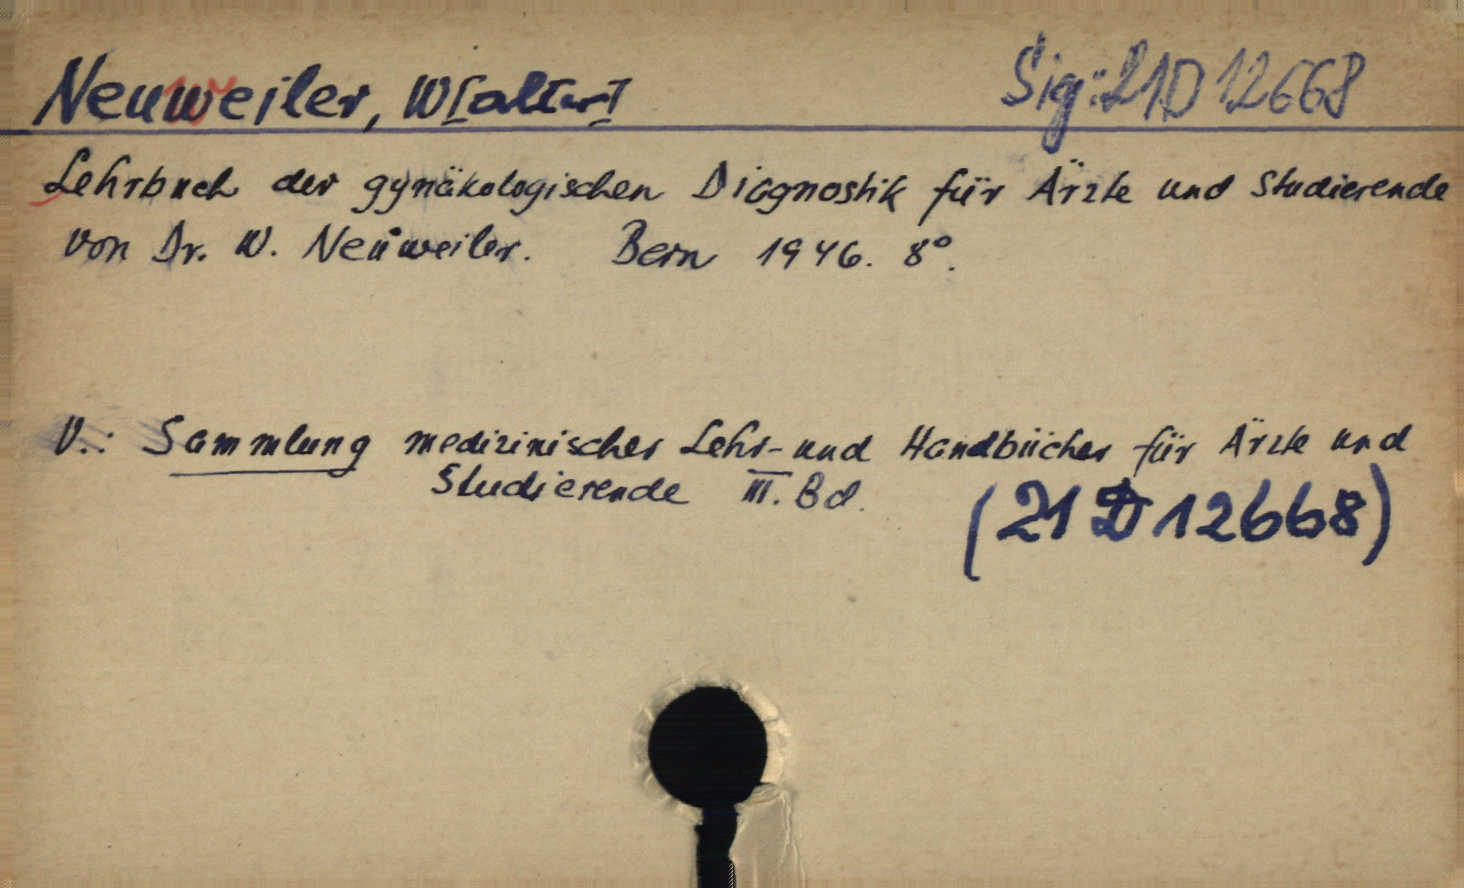 Neuweiler, W[alter] Sig: 21D 12668
Lehrbuch der gynäkologischen Diagnostik für Ärzte und Studierende
von Dr. W. Neuweiler. Bern 1946. 8°.
V.: Sammlung medizinischer Lehr- und Handbücher für Ärzte und
Studierende III. Bd.
(21 D 12668)